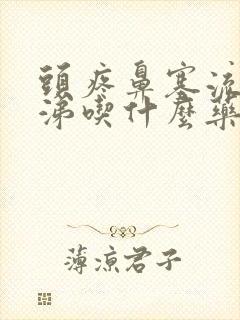 頭疼鼻塞流
涕喫什麼藥
薄涼君子